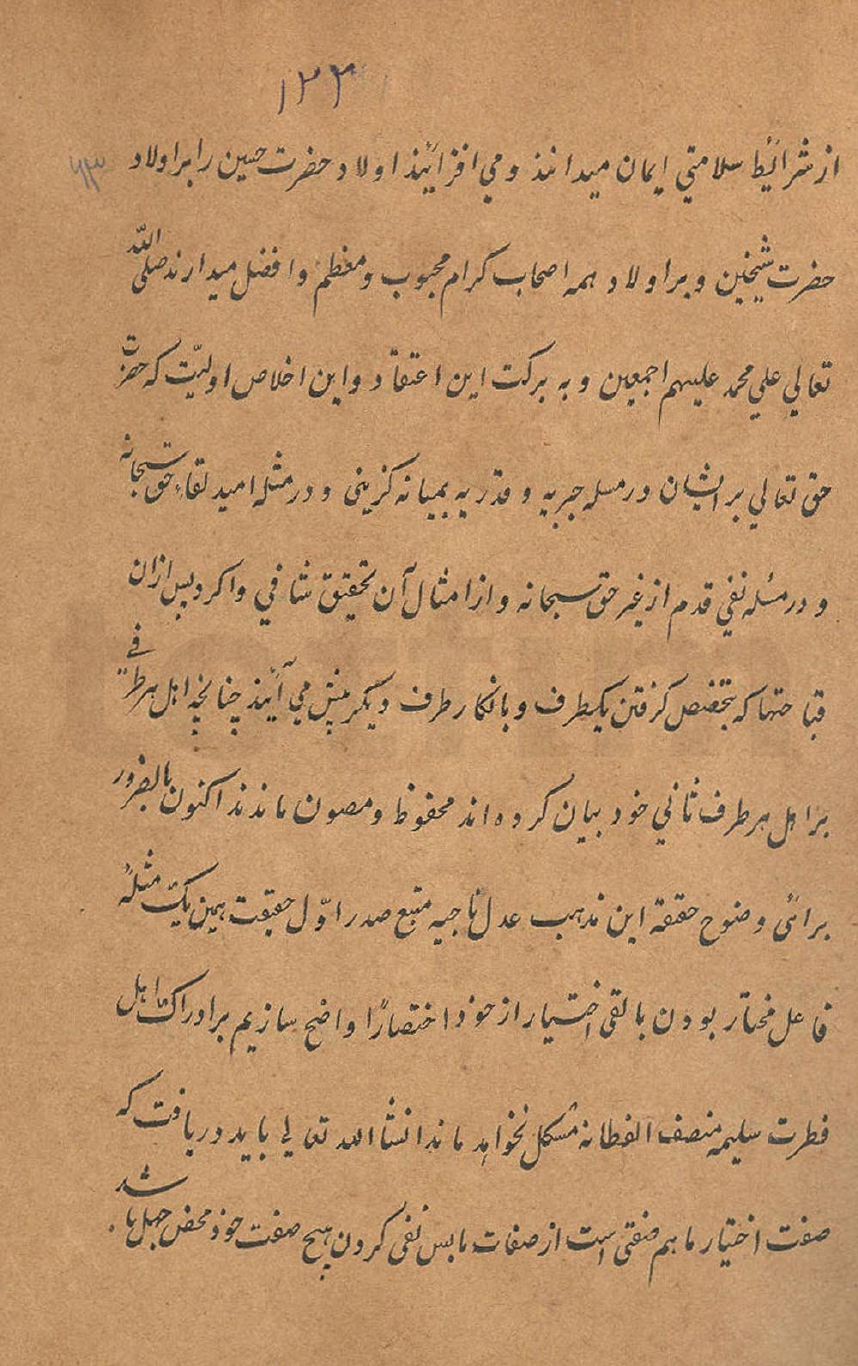 ۱۲۳
۶۳
از شرائیط سلامتي ایمان میدانند و مي افزائیند اولاد حضرت حسین را بر اولاد
حضرت شیخین و بر اولاد همه اصحاب کرام محبوب و معظم و افضل میدارند صلی الله
تعالي علي محمد علیهم اجمعین و به برکت این اعتقاد و این اخلاص اولیّت که حضرت
حق تعالي بر ایشان در مسله جبریه و قدریه بمیانه گزینی و در مثله امید لقاء حق سبحانه
و در مسئله نفي قدم از غیر حق سبحانه و از امثال آن تحقیق شافي وا کرد پس ازان
قباحتها که بتخصیص گرفتن یکطرف و بانکار طرف دیگر پیش مي آیند چنانچه اهل هر طرفے
بر اهل هر طرف ثاني خود بیان کرده اند محفوظ و مصون ماندند اکنون بالضرور
برائی وضوح حققة این مذهب عدل ناجیه متبع صدر اوّل حقیقت همین یک مثلهٔ
فاعل مختار بودن با لقی اختیار از خود اختصارًا واضح سازیم بر ادراک اهل
فطرت سلیمه منصف الفطانه مشکل نخواهد ماند انشأ الله تعالے باید دریافت که
صفت اختیار ما هم صفتی است از صفات ما پس نفی کردن هیچ صفت خود محض جهل باشد